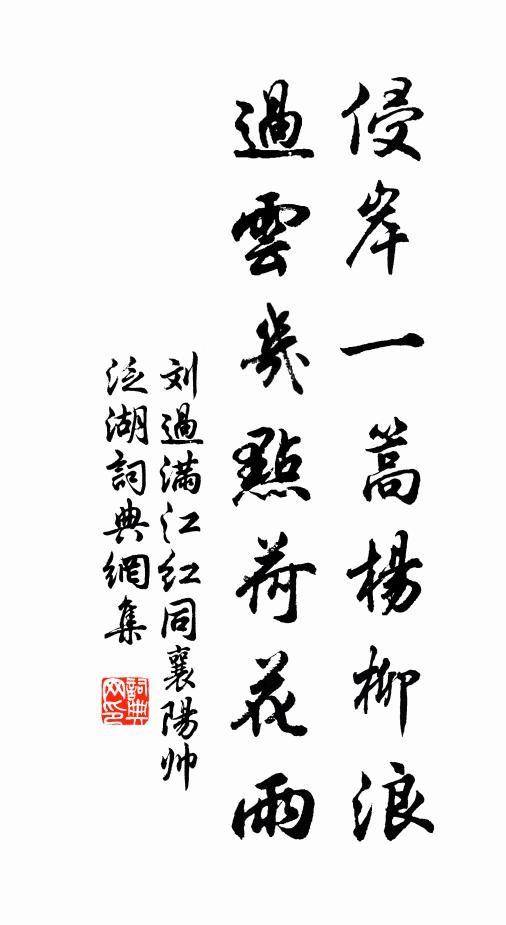 侵岸一蒿楊柳浪
過雲幾點荷花雨
刘過滿江红同襄陽帅
泛湖詞典網集
詞典网印